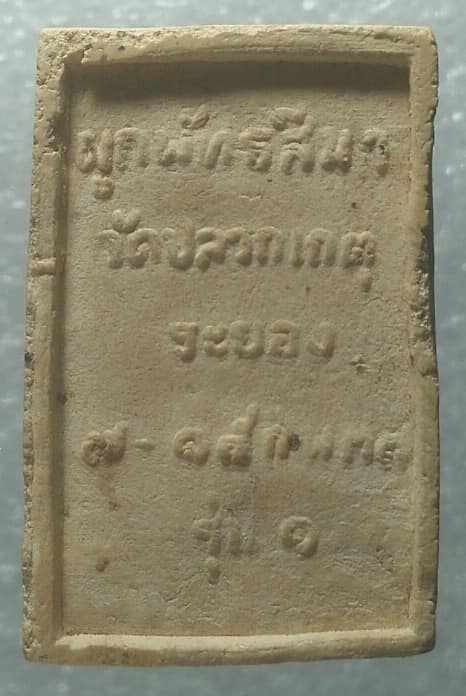 ผูกพัทธสีมา
วัดปลวกเกตุ
ระยอง
๗-๑๕ ก.พ.
รุ่น ๑